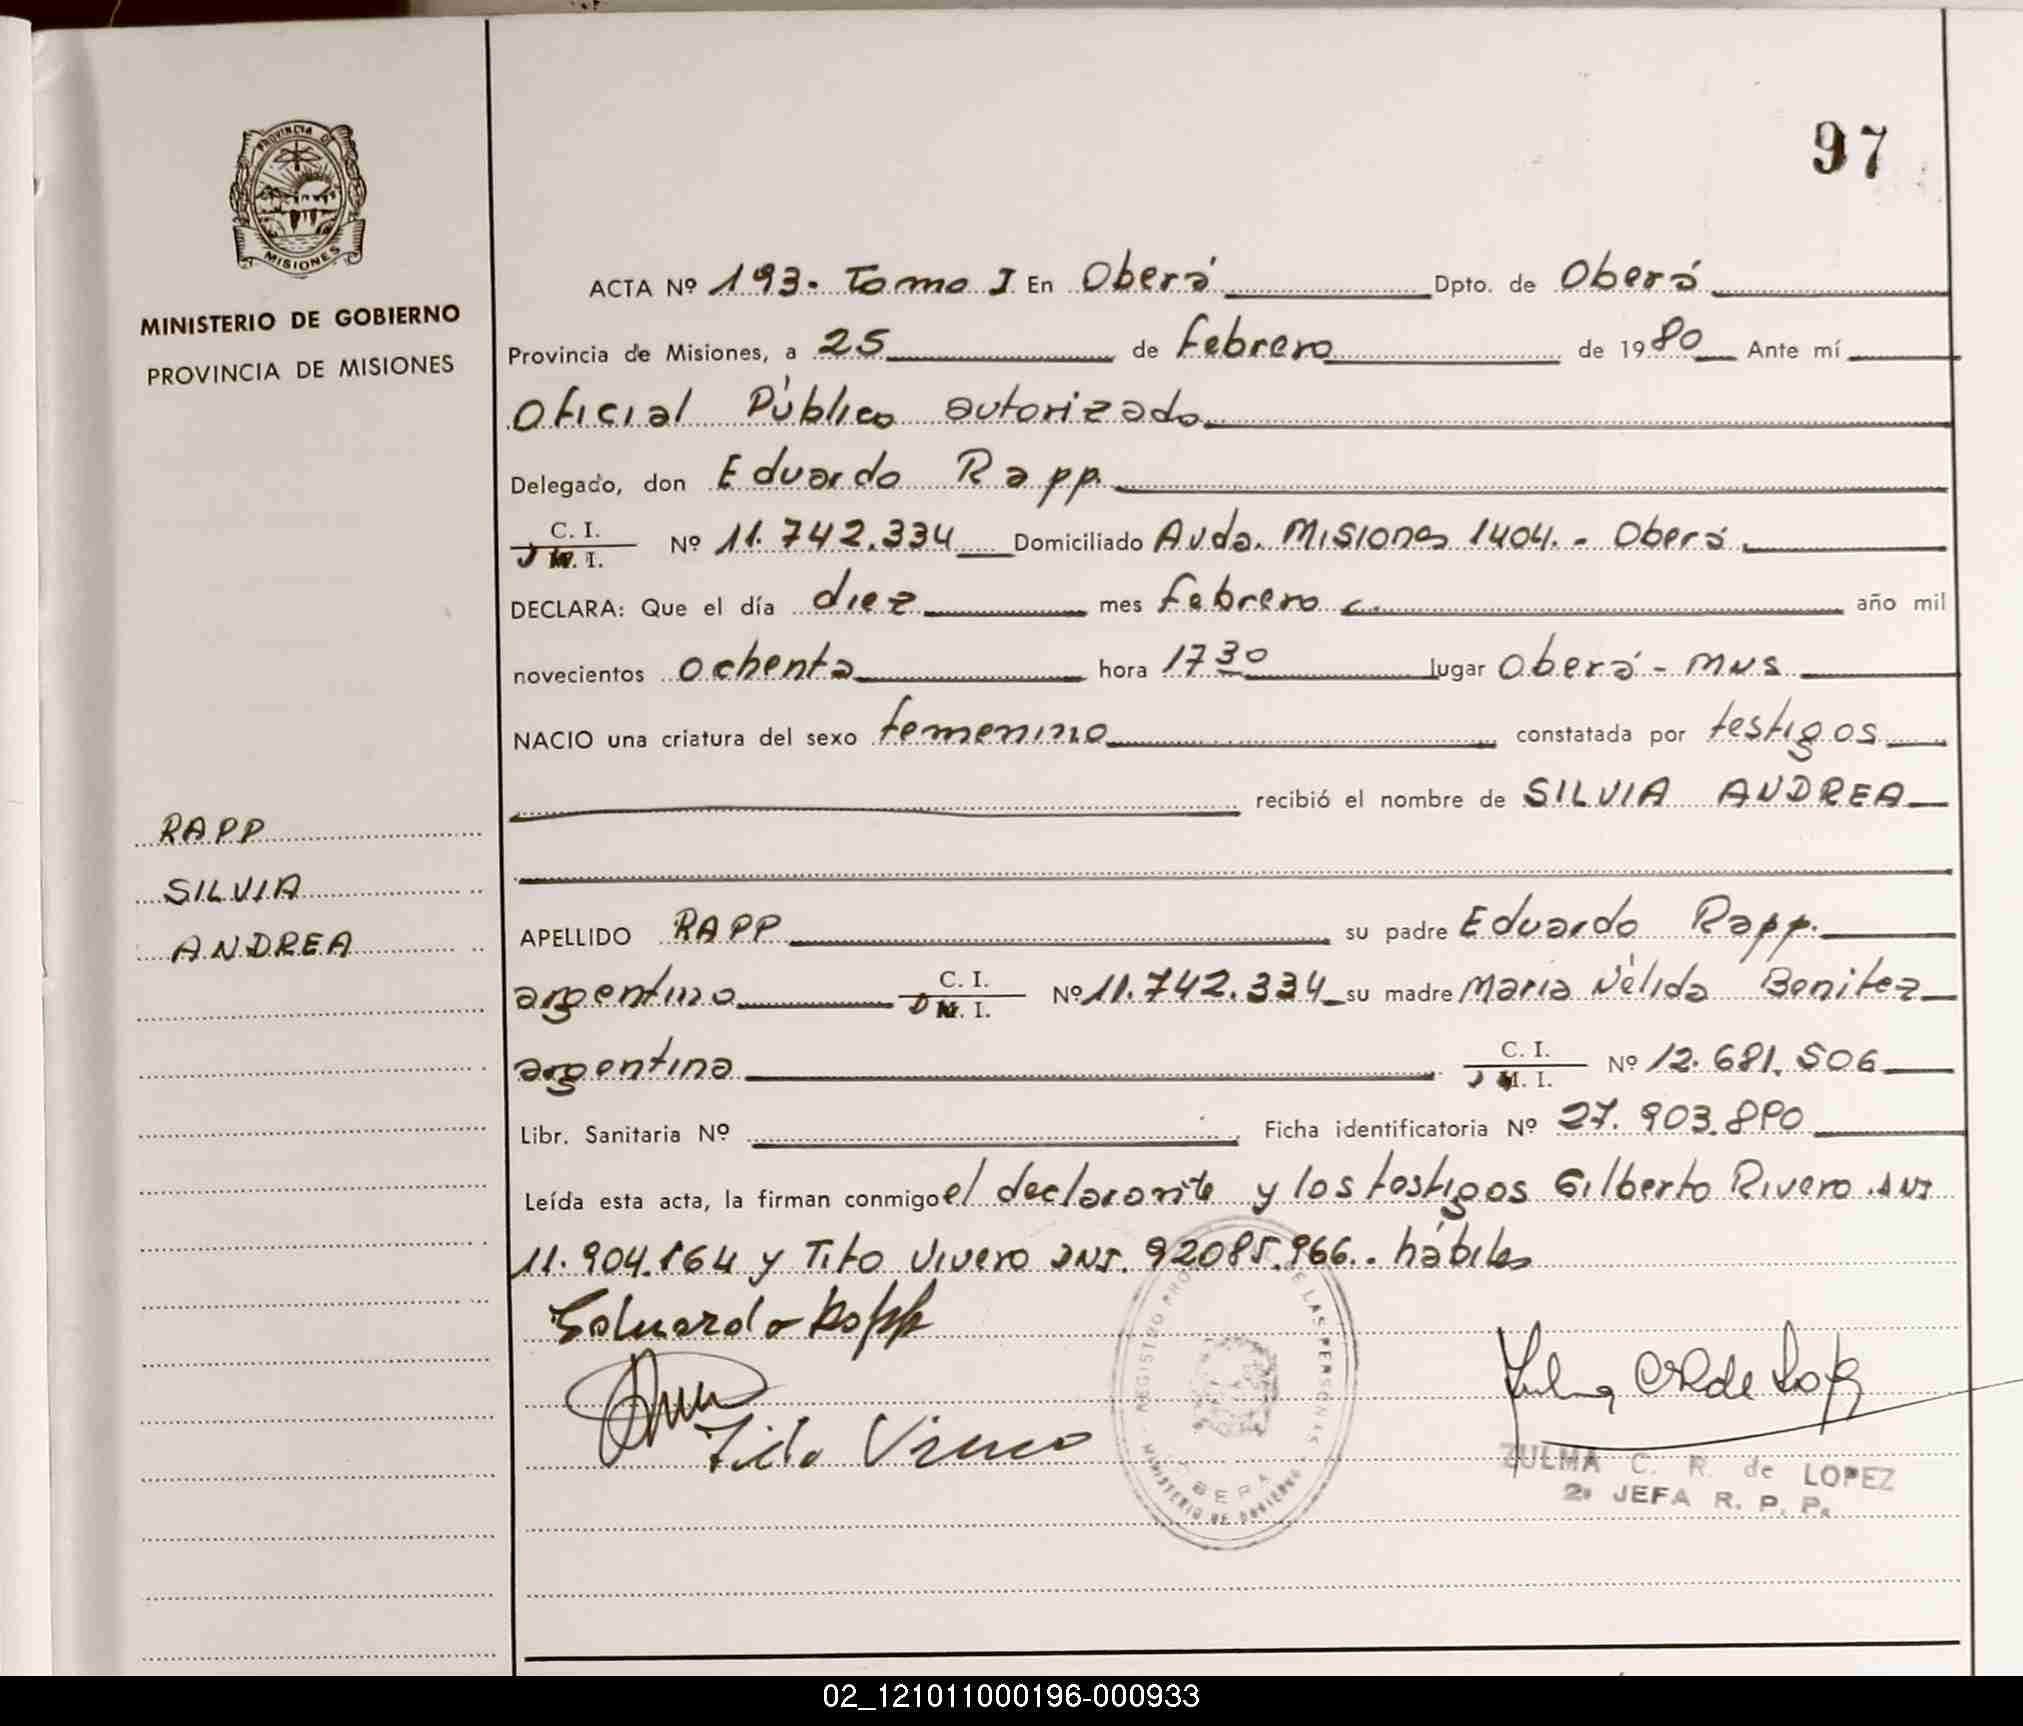 97
PROVINCIA DE
MISIONES
MINISTERIO DE GOBIERNO
PROVINCIA DE MISIONES
ACTA Nº 193. Tomo I En Oberá Dpto. de Oberá
Provincia de Misiones, a 25 de febrero de 1980 Ante mí
Oficial Público autorizado
Delegado, don Eduardo Rapp.
C. I.
Nº 11.742.334 Domiciliado Avda. Misiones 1404.- Oberá
DECLARA: Que el día diez mes febrero año mil
novecientos ochenta hora 17 30 lugar Oberá - Mns
NACIO una criatura del sexo femenino constatada por testigos
recibió el nombre de SILVIA ANDREA
RAPP
SILVIA
ANDREA
APELLIDO RAPP su padre Eduardo Rapp.
argentino C. I. Nº 11.742.334 su madre Maria Nélida Benitez
argentina C. I. Nº 12.681.506
Libr. Sanitaria Nº Ficha identificatoria Nº 27.903.890
Leída esta acta, la firman conmigo el declarante y los testigos Gilberto Rivero DNI
11.904.164 y Tito Vivero DNI. 92085.966.. hábiles
Eduardo Rapp
Tito Vivero
REGISTRO DE LAS PERSONAS
MINISTERIO DE GOBIERNO
ZULMA C. R. de LOPEZ
2ª JEFA R. P. P.
02_121011000196-000933